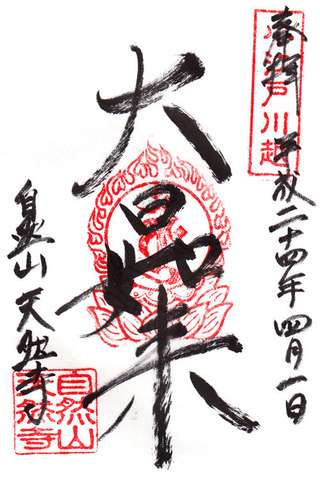 奉拝 平成二十四年四月一日
小江戸川越
大日如来
自然山 天然寺
自然山
天然寺